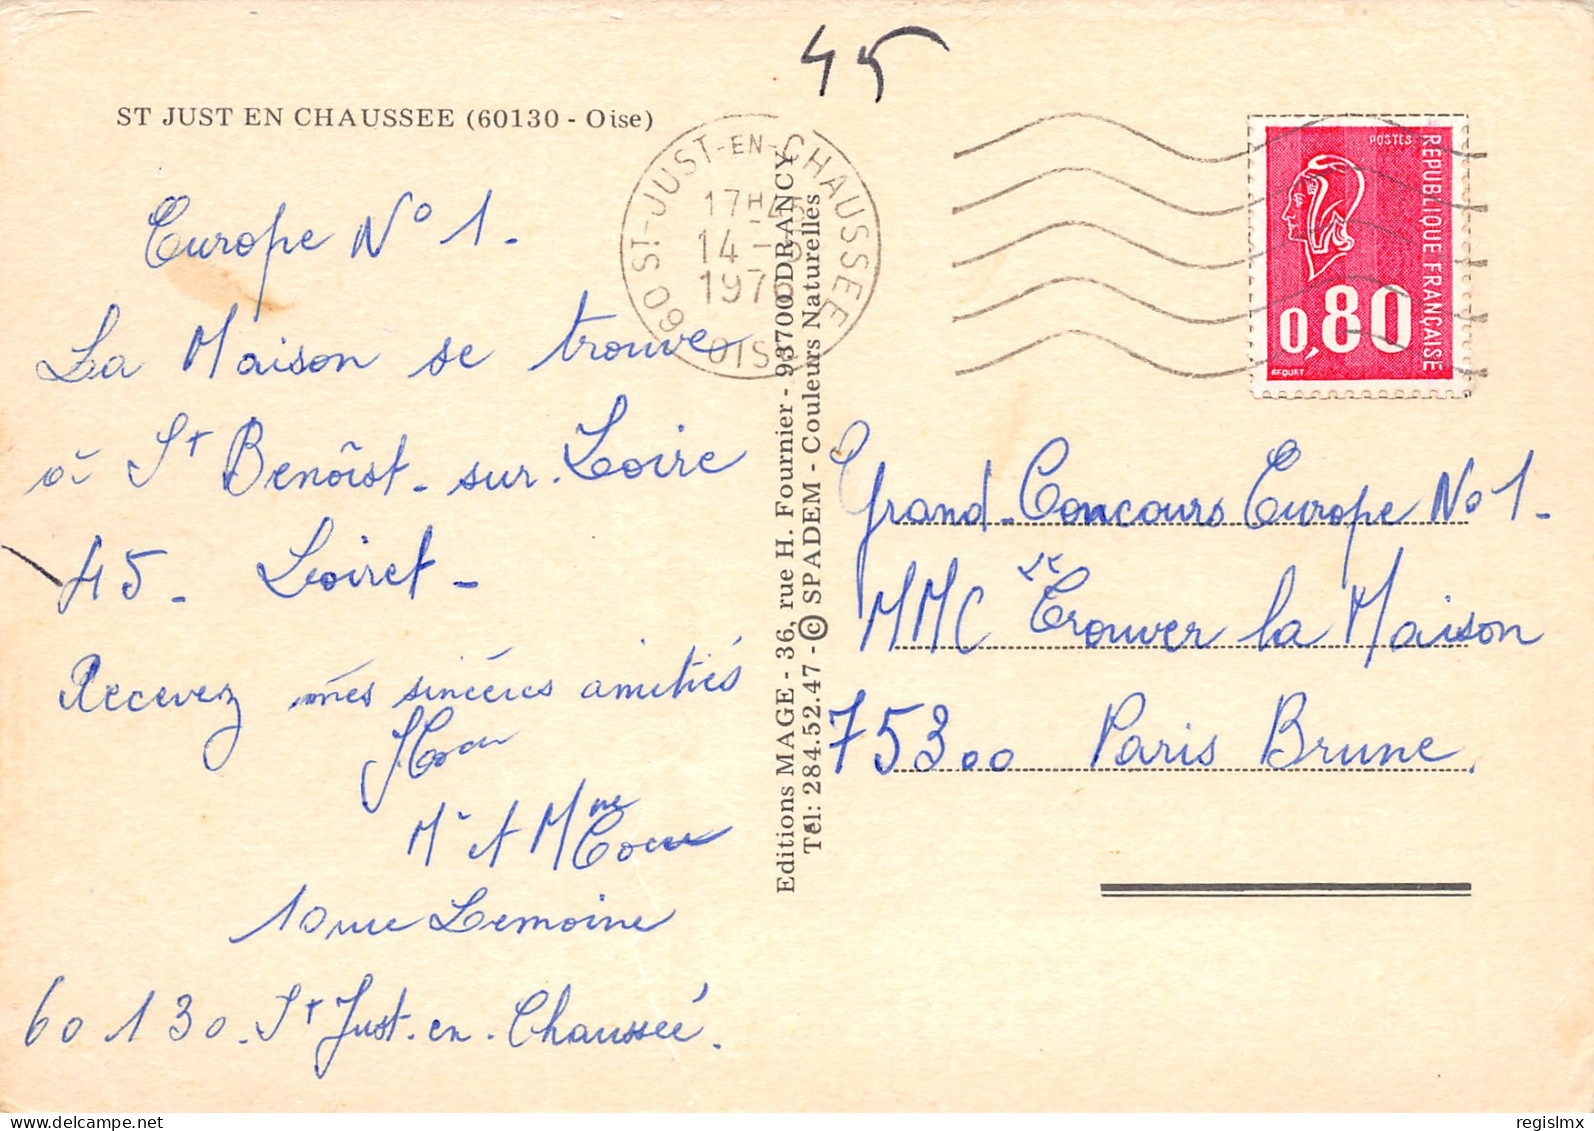 45
ST JUST EN CHAUSSEE (60130 - Oise)
Europe N° 1.
La Maison se trouve
à St Benoîst-sur-Loire
45. Loiret-
Recevez mes sincères amitiés
Mr et Mme
10 rue Lemoine
60130. St Just.en.Chausseé.
60 ST-JUST-EN-CHAUSSEE
17H45
14 -
OISE
Editions MAGE - 36, rue H. Fournier - 93700 DRANCY
Tél: 284.52.47 - © SPADEM - Couleurs Naturelles
POSTES
REPUBLIQUE FRANÇAISE
0,80
BEQUET
Grand-Concours Europe No 1.
MMC Trouver la Maison
75300 Paris Brune.
delcampe.net
regislmx